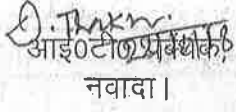 आई०टी० प्रबंधक,
नवादा।